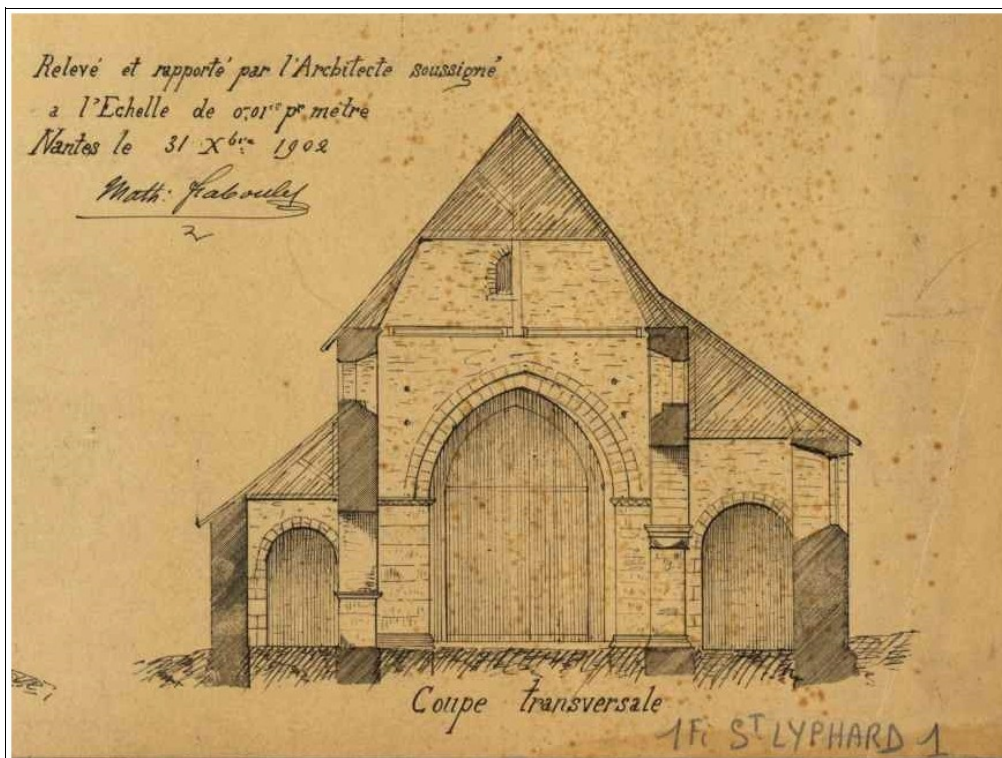 Relevé et rapporté par l'Architecte soussigné
a l'Echelle de 0,01ᶜ pʳ métre
Nantes le 31 Xbre 1902
Math:
Coupe transversale
1Fi ST LYPHARD 1